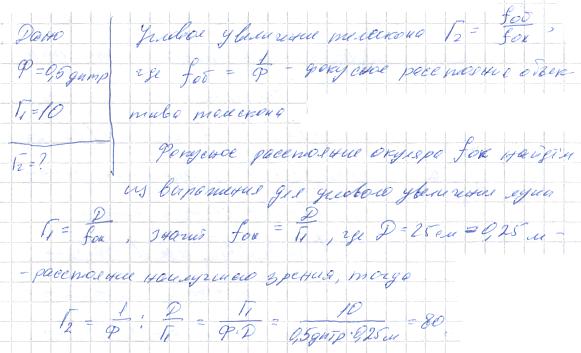 Дано
Ф = 0,5 дптр
Г₁ = 10
Г₂ = ?
Угловое увеличение телескопа Г₂ = fоб/fок,
где fоб = 1/Ф - фокусное расстояние объек-
тива телескопа
Фокусное расстояние окуляра fок найдём
из выражения для углового увеличения лупы
Г₁ = D/fок, значит fок = D/Г₁, где D = 25 см = 0,25 м -
- расстояние наилучшего зрения, тогда
Г₂ = 1/Ф : D/Г₁ = Г₁/(Ф·D) = 10/(0,5 дптр · 0,25 м) = 80.